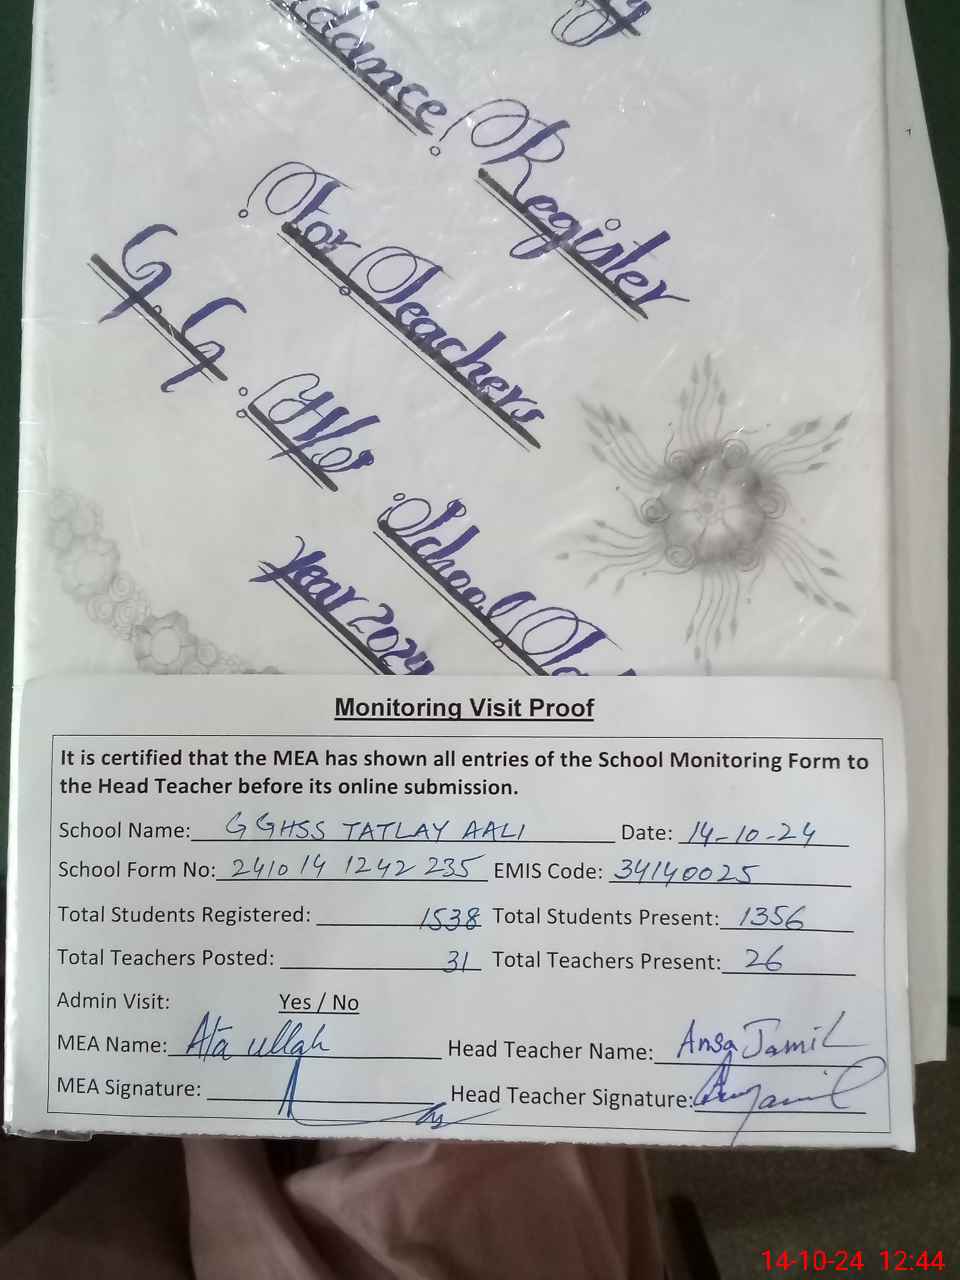 Register
For Teachers
G. G. H/S
School
Year 2024
Monitoring Visit Proof
It is certified that the MEA has shown all entries of the School Monitoring Form to
the Head Teacher before its online submission.
School Name: GGHSS TATLAY AALI Date: 14-10-24
School Form No: 2410 14 1242 235 EMIS Code: 34140025
Total Students Registered: 1538 Total Students Present: 1356
Total Teachers Posted: 31 Total Teachers Present: 26
Admin Visit: Yes / No
MEA Name: Ata ullah Head Teacher Name: Ansa Jamil
MEA Signature: Head Teacher Signature:
14-10-24 12:44